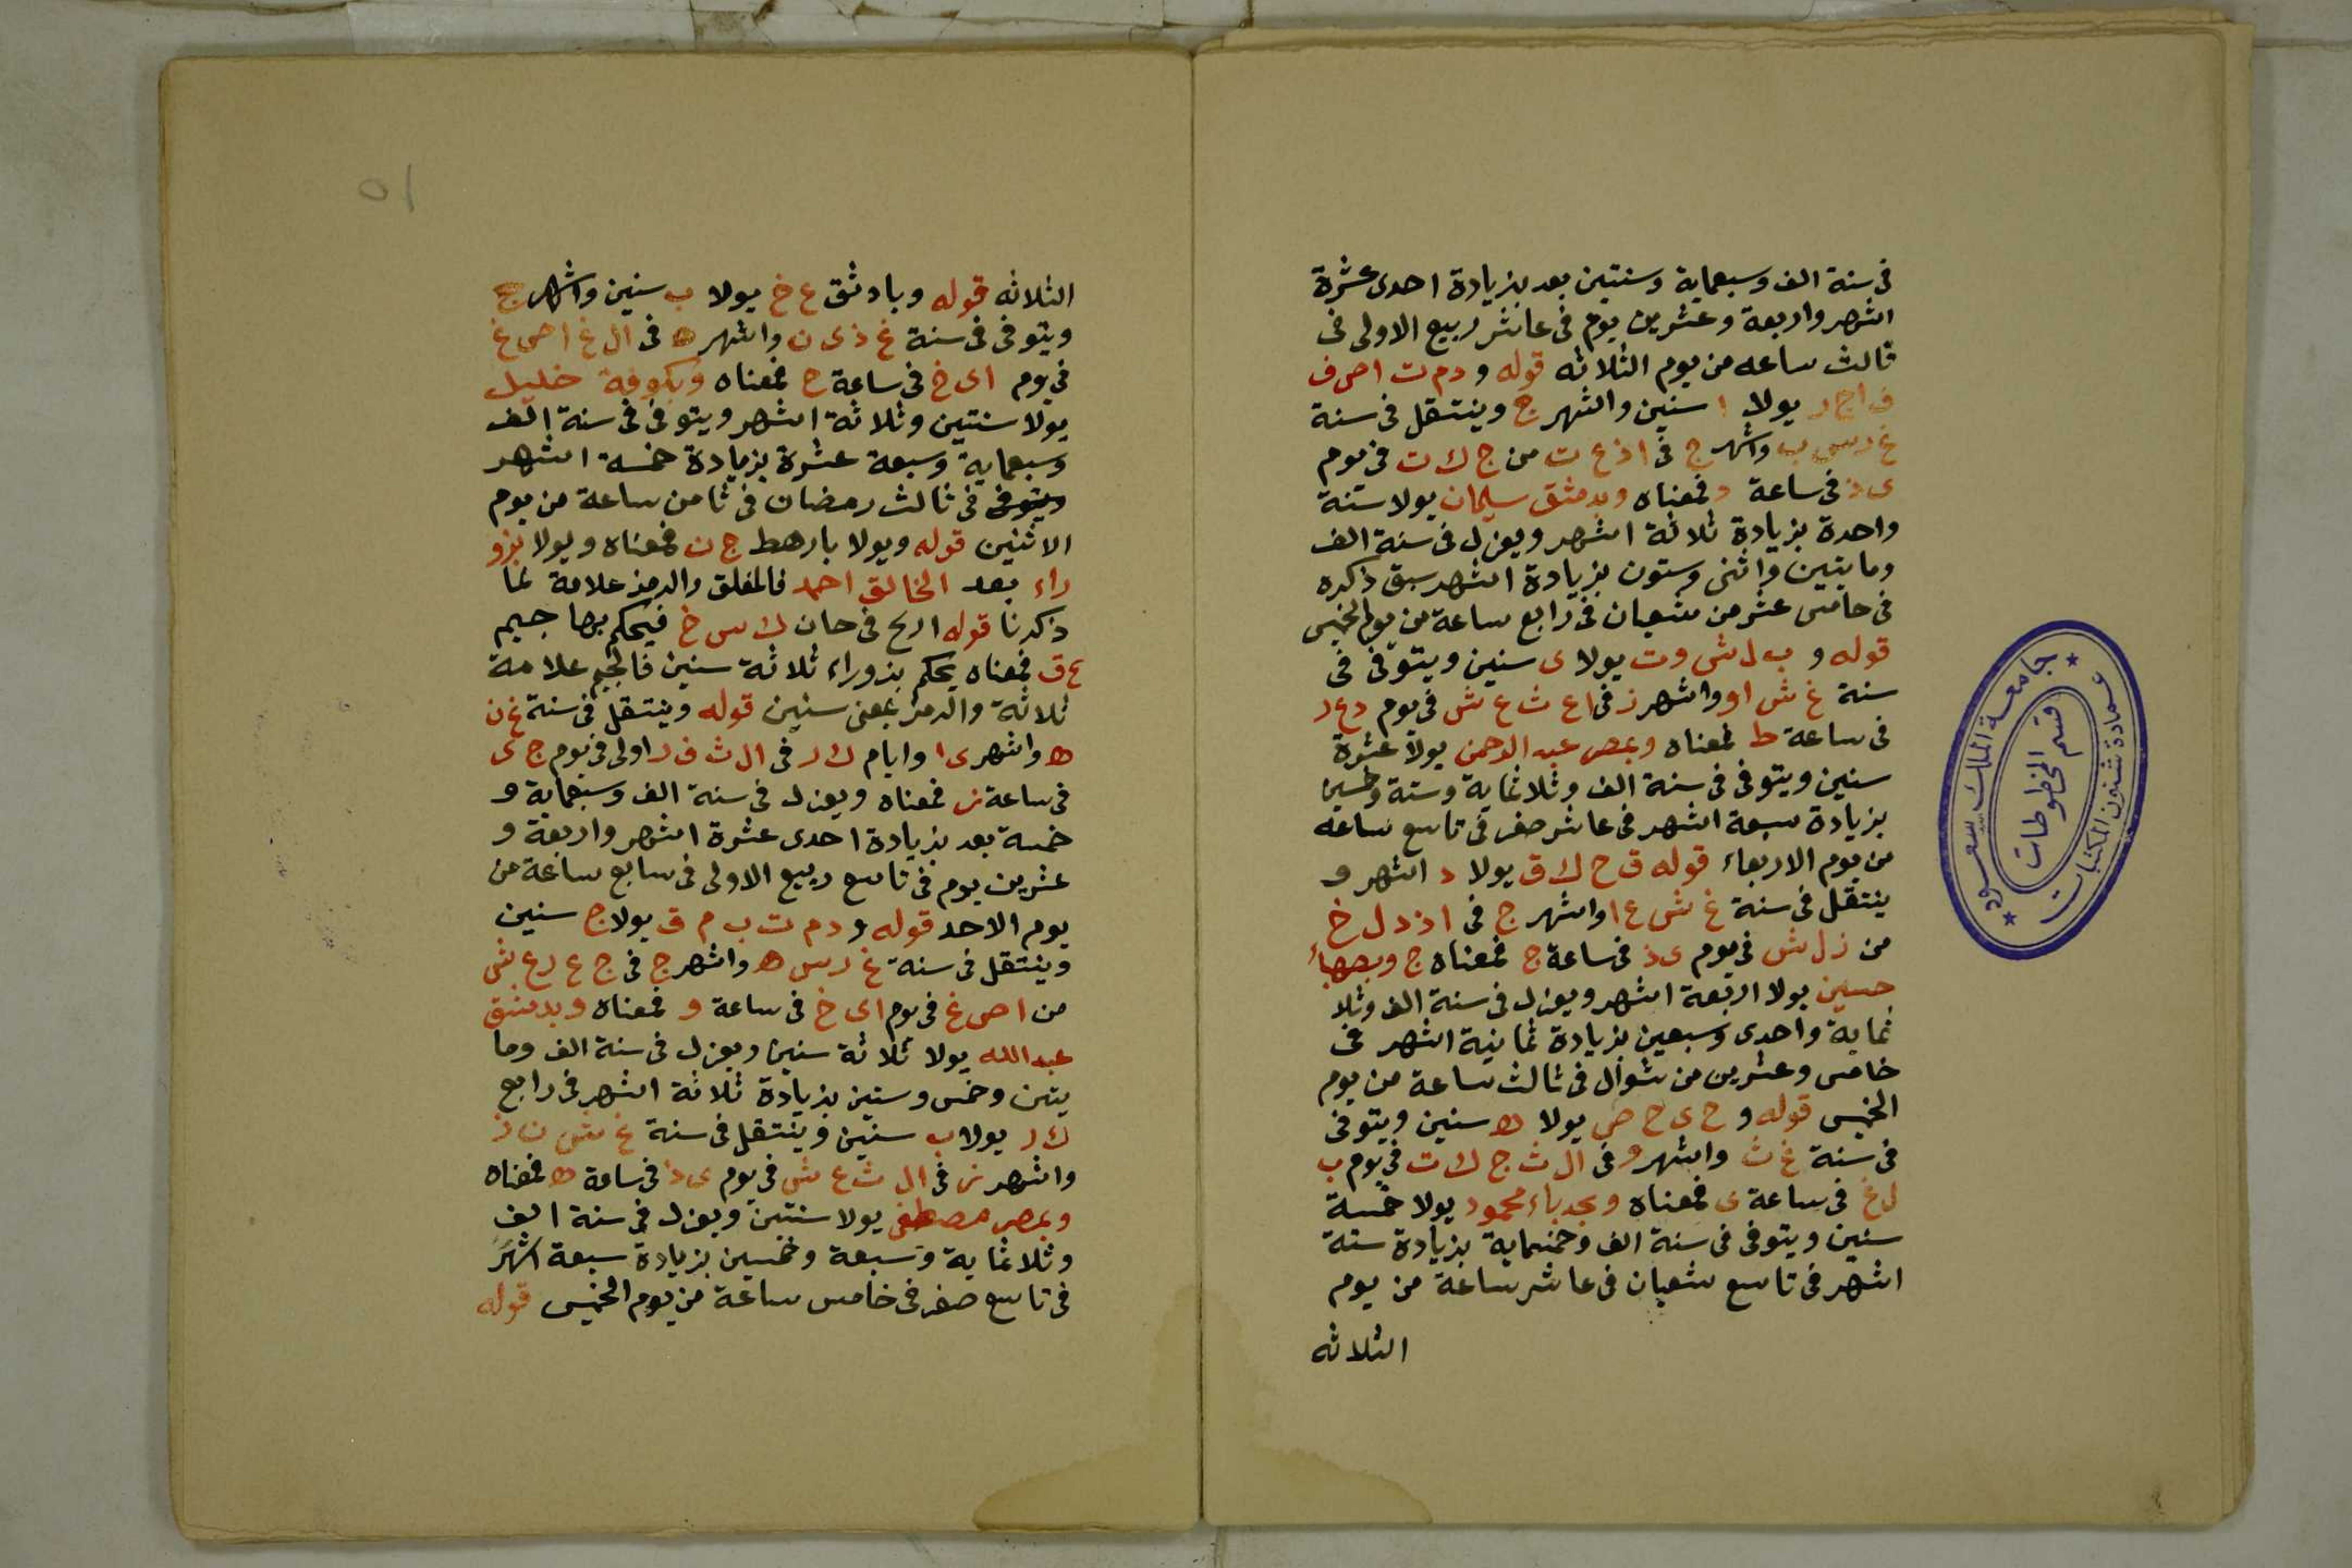 فى سنة الف وسبعماية وسنتين بعد بزيادة احدى عشرة
اشهر واربعة وعشرين يوم فى عاشر ربيع الاولى فى
ثالث ساعه من يوم الثلاثه قوله و دم ت اص ف
ف اج ر يولا ا سنين واشهر ج وينتقل فى سنة
غ رس ب واشهر ج فى اذع ت من ج ك ت فى يوم
ى ذ فى ساعة د فمعناه وبدمشق سليمان يولا سنة
واحدة بزيادة ثلاثة اشهر ويعزل فى سنة الف
ومايتين واثنى وستون بزيادة اشهر سبق ذكره
فى خامس عشر من شعبان فى رابع ساعة من يوم الخميس
قوله و ب ل ش وت يولا ى سنين ويتوفى فى
سنة غ ش او واشهر ز فى اع ث ع ش فى يوم دع د
فى ساعة ط فمعناه وبمصر عبد الرحمن يولا عشرة
سنين ويتوفى فى سنة الف وثلاثماية وستة وخمسين
بزيادة سبعة اشهر فى عاشر صفر فى تاسع ساعه
من يوم الاربعاء قوله ق ح ك ق يولا د اشهر و
ينتقل فى سنة غ ش ع ا واشهر ج فى اذ دل خ
من زل ش فى يوم ى ذ فى ساعة ج فمعناه ج وبصهباء
حسين يولا اربعة اشهر ويعزل فى سنة الف وثلا
ثماية واحدى وسبعين بزيادة ثمانية اشهر فى
خامس وعشرين من شوال فى ثالث ساعة من يوم
الخميس قوله و ح ى ح ص يولا ه سنين ويتوفى
فى سنة غ ث واشهر و فى ال ث ج ك ت فى يوم ب
ل غ فى ساعة ى فمعناه وبحدباء محمود يولا خمسة
سنين ويتوفى فى سنة الف وخمسماية بزيادة ستة
اشهر فى تاسع شعبان فى عاشر ساعة من يوم
الثلاثه
٥١
الثلاثه قوله وبادثق ع خ يولا ب سنين واشهر ج
ويتوفى فى سنة غ ذى ن واشهر ه فى ال غ اص غ
فى يوم اى خ فى ساعة ح فمعناه وبكوفة خليل
يولا سنتين وثلاثة اشهر ويتوفى فى سنة الف
وسبعماية وسبعة عشرة بزيادة خمسة اشهر
ويتوفى فى ثالث رمضان فى ثامن ساعة من يوم
الاثنين قوله ويولا بارهط ج ن فمعناه ويولا بزو
راء بعد الخالق احمد فالمغلق والرمز علامة لما
ذكرنا قوله اربح فى حان ك س خ فيحكم بها جيم
ع ق فمعناه يحكم بزوراء ثلاثة سنين فالجيم علامة
ثلاثة والرمز بمعنى سنين قوله وينتقل فى سنة غ ن
ه واشهر ى ا وايام ك د فى ال ث ف ر اولى فى يوم ج ى
فى ساعة ز فمعناه ويعزل فى سنة الف وسبعماية و
خمسة بعد بزيادة احدى عشرة اشهر واربعة و
عشرين يوم فى تاسع ربيع الاولى فى سابع ساعة من
يوم الاحد قوله و دم ت ب م ق يولا ج سنين
وينتقل فى سنة غ رس ه واشهر ج فى ج ع رع ش
من اص غ فى يوم اى خ فى ساعة و فمعناه وبدمشق
عبد الله يولا ثلاثة سنين ويعزل فى سنة الف وما
يتين وخمس وستين بزيادة ثلاثة اشهر فى رابع
ك ر يولا ب سنين وينتقل فى سنة غ ش ن ذ
واشهر ز فى ال ث ع ش فى يوم ى ذ فى ساعة ه فمعناه
وبمصر مصطفى يولا سنتين ويعزل فى سنة الف
وثلاثماية وسبعة وخمسين بزيادة سبعة اشهر
فى تاسع صفر فى خامس ساعة من يوم الخميس قوله
جامعة الملك سعود
عمادة شئون المكتبات
قسم المخطوطات